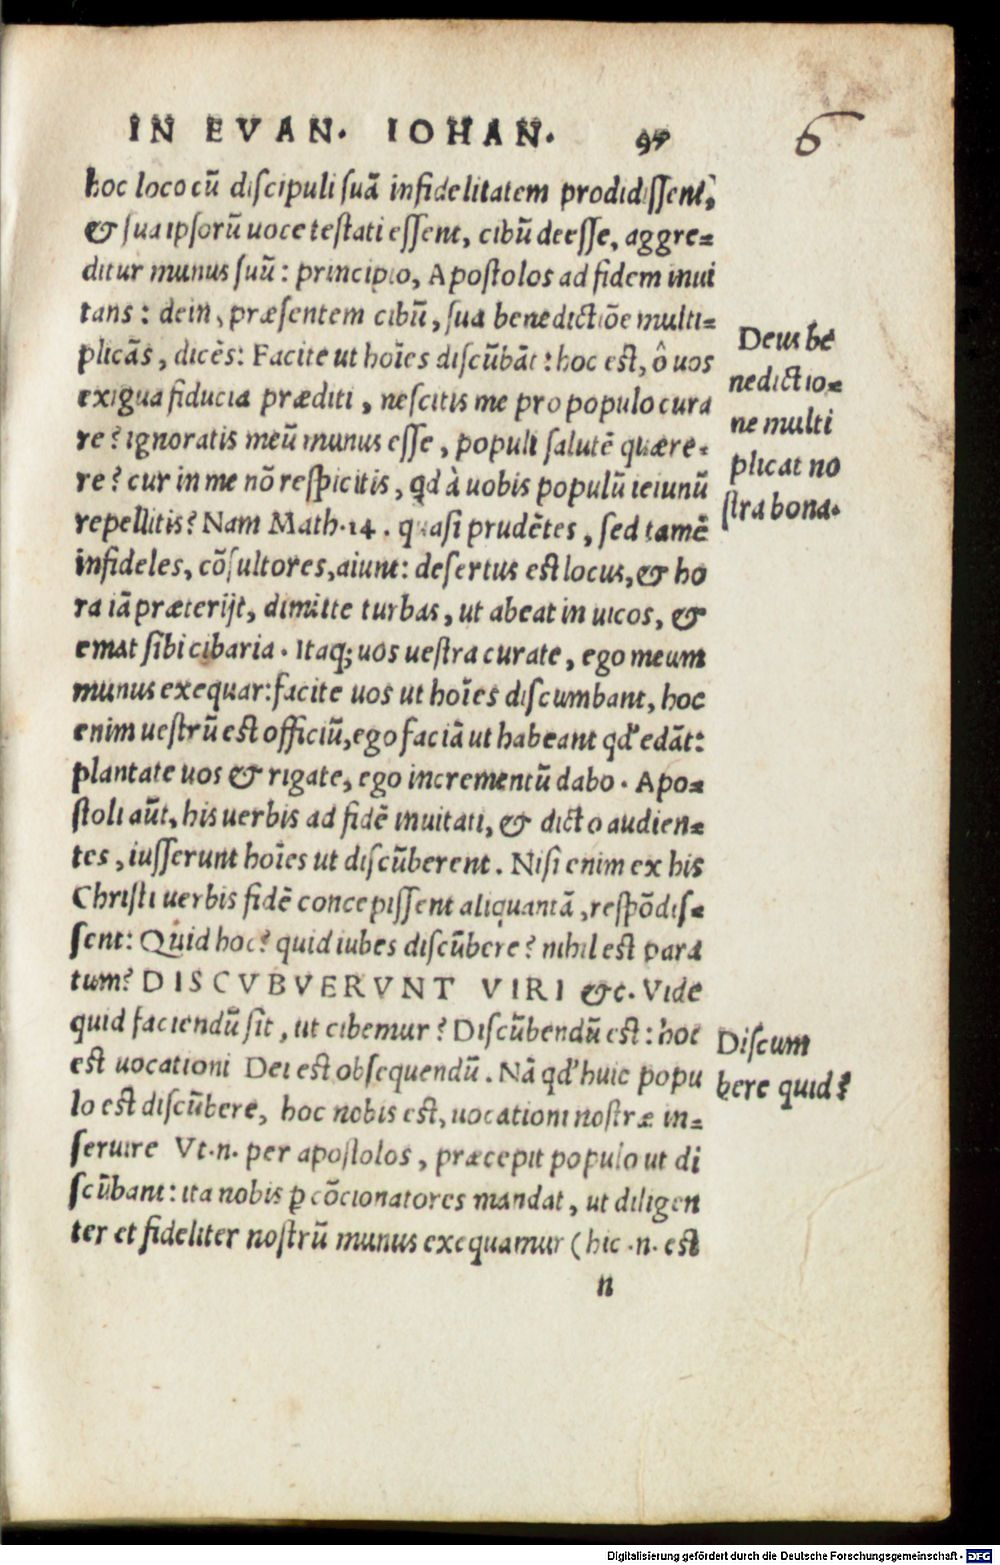 IN EVAN. IOHAN. 97 6
hoc loco cū discipuli suā infidelitatem prodidissent,
& sua ipsorū uoce testati essent, cibū deesse, aggre=
ditur munus suū: principio, Apostolos ad fidem inui
tans: dein, præsentem cibū, sua benedictiōe multi=
plicās, dicēs: Facite ut hoīes discūbāt: hoc est, ô uos
exigua fiducia præditi, nescitis me pro populo cura
re? ignoratis meū munus esse, populi salutē quære=
re? cur in me nō respicitis, qd à uobis populū ieiunū
repellitis? Nam Math.14. quasi prudētes, sed tamē
infideles, cōsultores, aiunt: desertus est locus, & ho
ra iā præterijt, dimitte turbas, ut abeat in uicos, &
emat sibi cibaria. Itaq; uos uestra curate, ego meum
munus exequar: facite uos ut hoīes discumbant, hoc
enim uestrū est officiū, ego faciā ut habeant qđ edāt:
plantate uos & rigate, ego incrementū dabo. Apo=
stoli aūt, his uerbis ad fidē inuitati, & dicto audien=
tes, iusserunt hoīes ut discūberent. Nisi enim ex his
Christi uerbis fidē concepissent aliquantā, respōdis=
sent: Quid hoc? quid iubes discūbere? nihil est para
tum? DISCVBVERVNT VIRI &c. Vide
quid faciendū sit, ut cibemur? Discūbendū est: hoc
est uocationi Dei est obsequendū. Nā qđ huic popu
lo est discūbere, hoc nobis est, uocationi nostræ in=
seruire Vt.n. per apostolos, præcepit populo ut di
scūbant: ita nobis ꝑ cōcionatores mandat, ut diligen
ter et fideliter nostrū munus exequamur (hic .n. est
n
Deus be
nedictio=
ne multi
plicat no
stra bona.
Discum
bere quid?
Digitalisierung gefördert durch die Deutsche Forschungsgemeinschaft - DFG